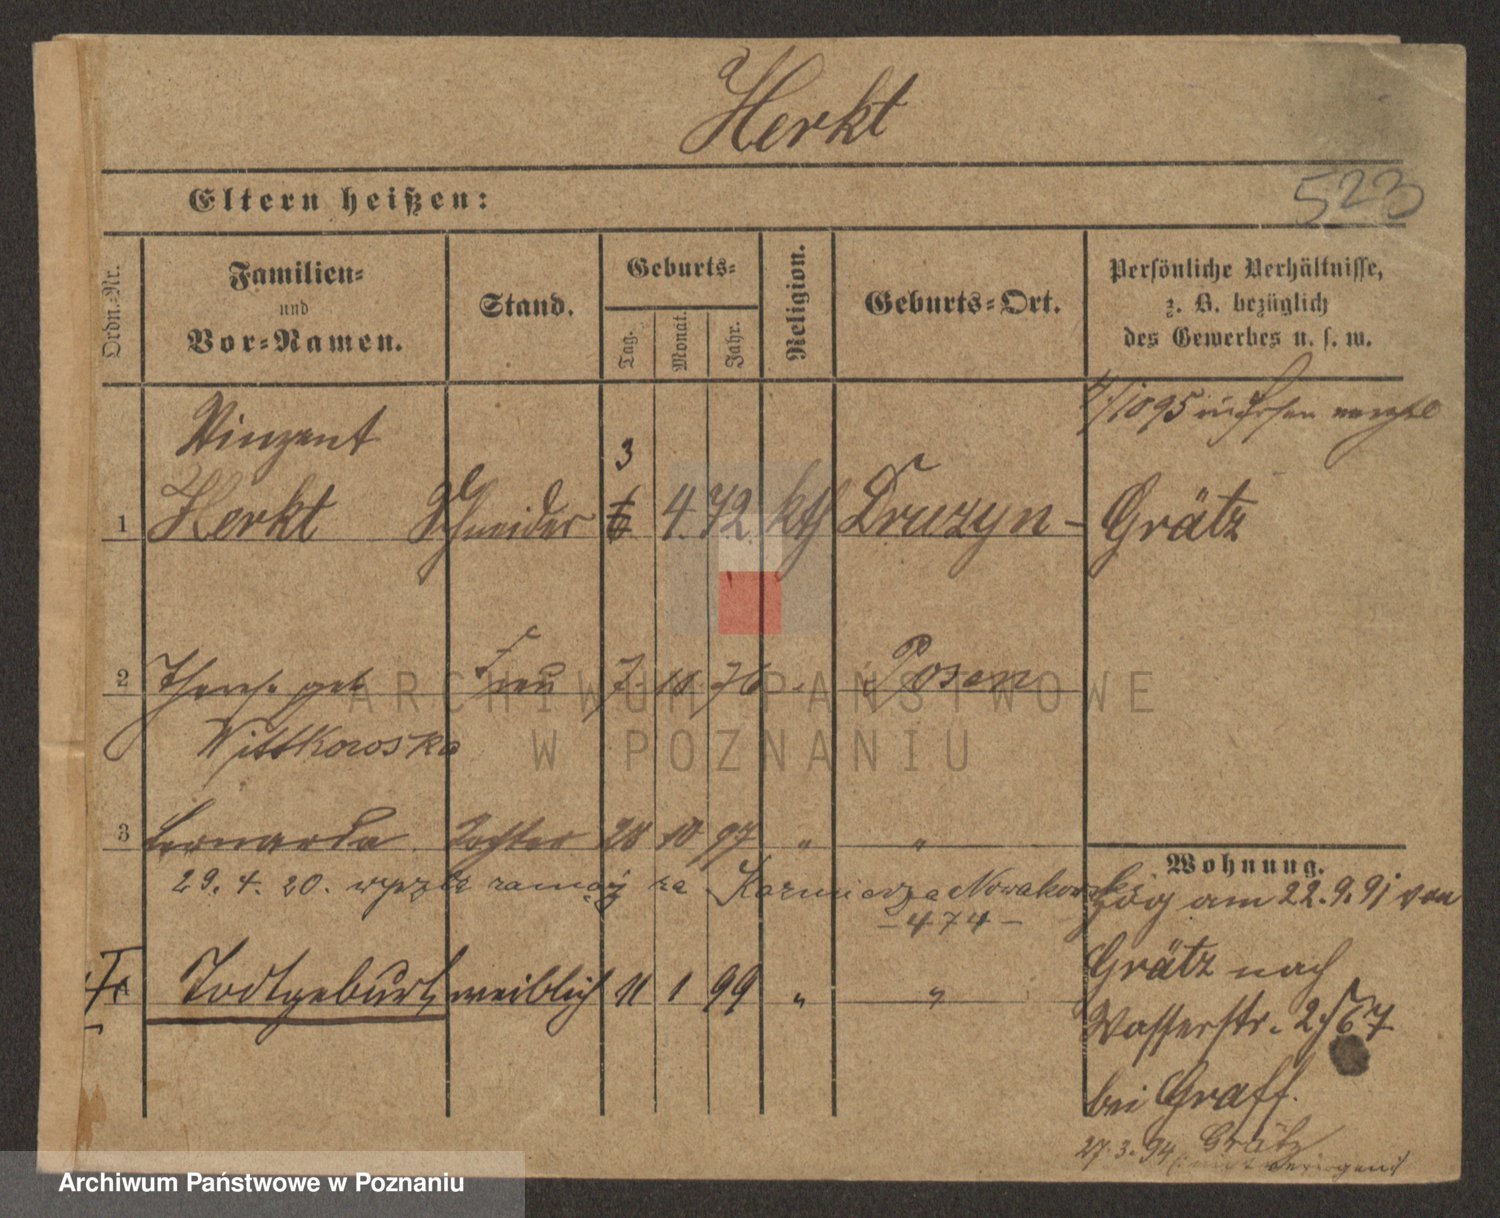 Herkt
523
Eltern heißen:
Ordn.-Nr.
Familien-
und
Vor-Namen.
Stand.
Geburts-
Tag.
Monat.
Jahr.
Religion.
Geburts-Ort.
Persönliche Verhältnisse,
z. B. bezüglich
des Gewerbes u. s. w.
Vinzent
3
1 Herkt Schneider 6 4. 72 kth Druzyn - Grätz
2 Therese geb Frau 7 10 76 " Posen
Wittkowska
3 Leonarda Tochter 28 10 97 " "
Wohnung.
29. 4. 20. za Kazmierza Nowakowski
- 474 -
Zog am 22.9.91 von
Grätz nach
Todtgeburt weiblich 11 1 99 " "
Wasserstr. 2
bei Graff.
27.3.94 Grätz
ARCHIWUM PAŃSTWOWE
W POZNANIU
Archiwum Państwowe w Poznaniu